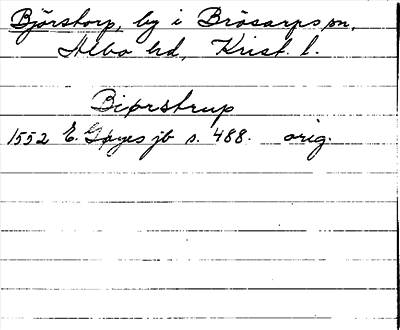 Björstorp, by i Brösarps sn,
Albo hd, Krist. l.
Biørstrup
1552 E. Gøyes jb s. 488. orig.